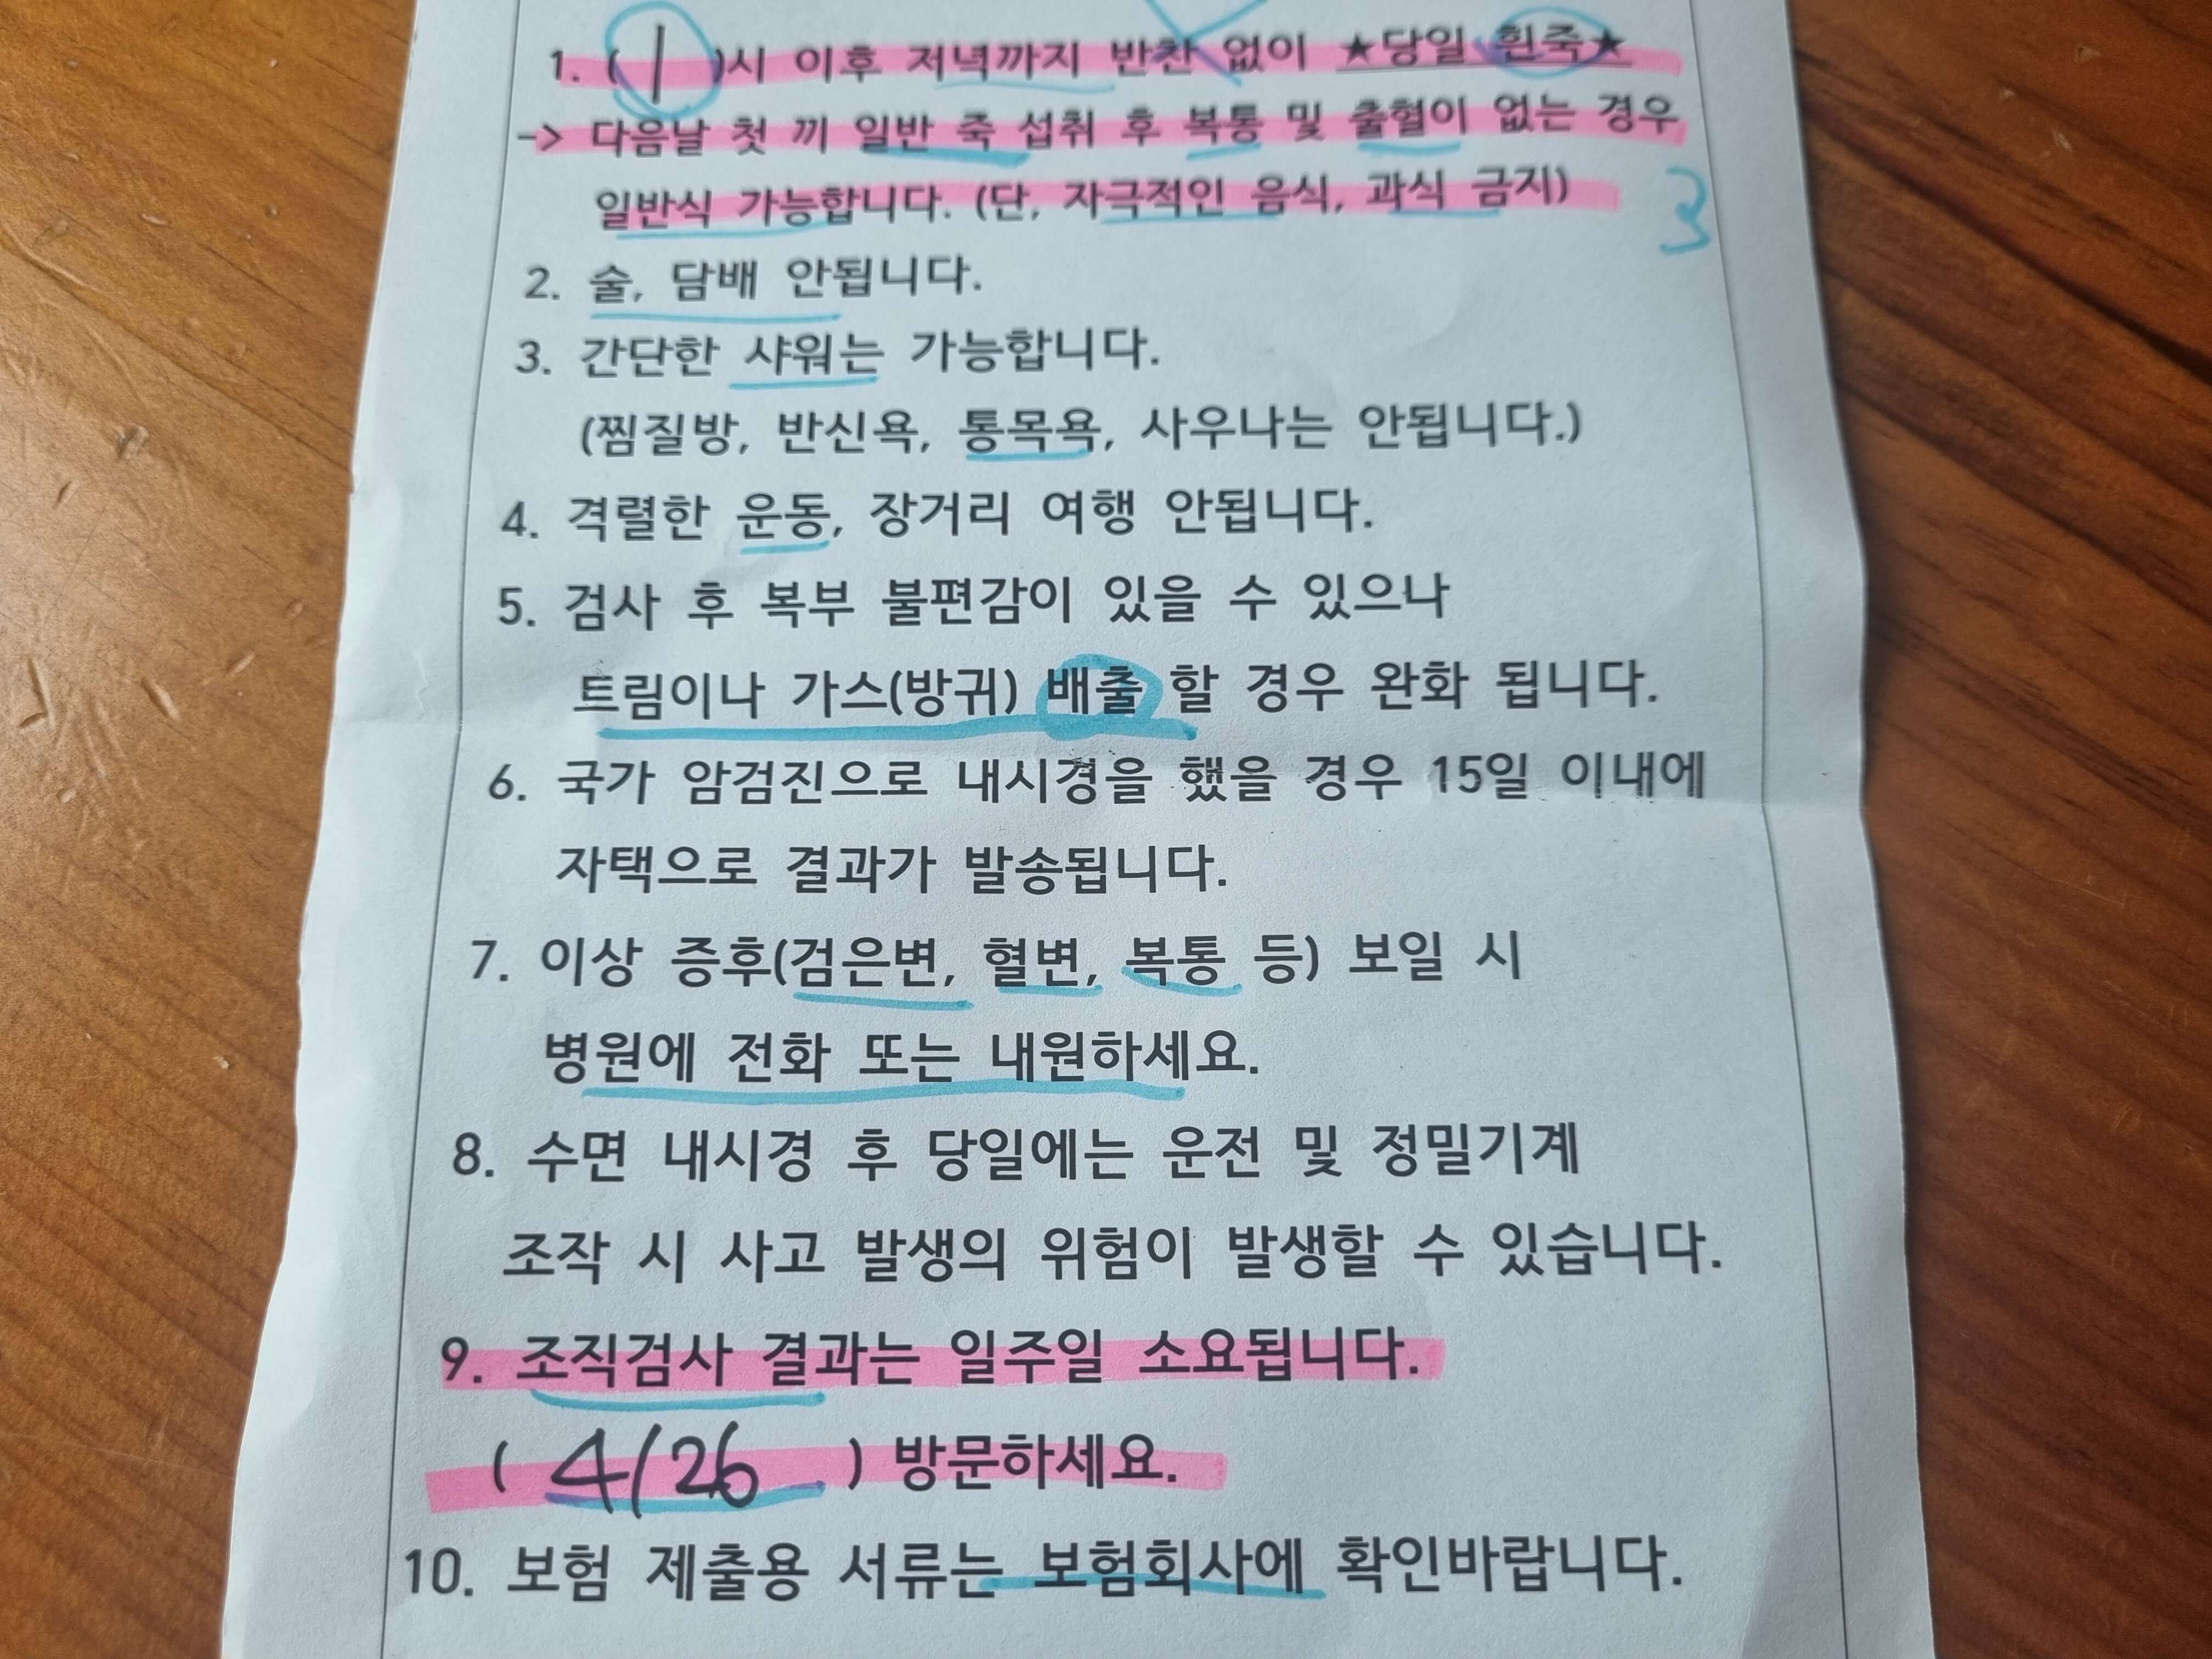 1. ( 1 )시 이후 저녁까지 반찬 없이 ★당일 흰죽★
-> 다음날 첫 끼 일반 죽 섭취 후 복통 및 출혈이 없는 경우
일반식 가능합니다. (단, 자극적인 음식, 과식 금지)
3
2. 술, 담배 안됩니다.
3. 간단한 샤워는 가능합니다.
(찜질방, 반신욕, 통목욕, 사우나는 안됩니다.)
4. 격렬한 운동, 장거리 여행 안됩니다.
5. 검사 후 복부 불편감이 있을 수 있으나
트림이나 가스(방귀) 배출 할 경우 완화 됩니다.
6. 국가 암검진으로 내시경을 했을 경우 15일 이내에
자택으로 결과가 발송됩니다.
7. 이상 증후(검은변, 혈변, 복통 등) 보일 시
병원에 전화 또는 내원하세요.
8. 수면 내시경 후 당일에는 운전 및 정밀기계
조작 시 사고 발생의 위험이 발생할 수 있습니다.
9. 조직검사 결과는 일주일 소요됩니다.
( 4/26 ) 방문하세요.
10. 보험 제출용 서류는 보험회사에 확인바랍니다.